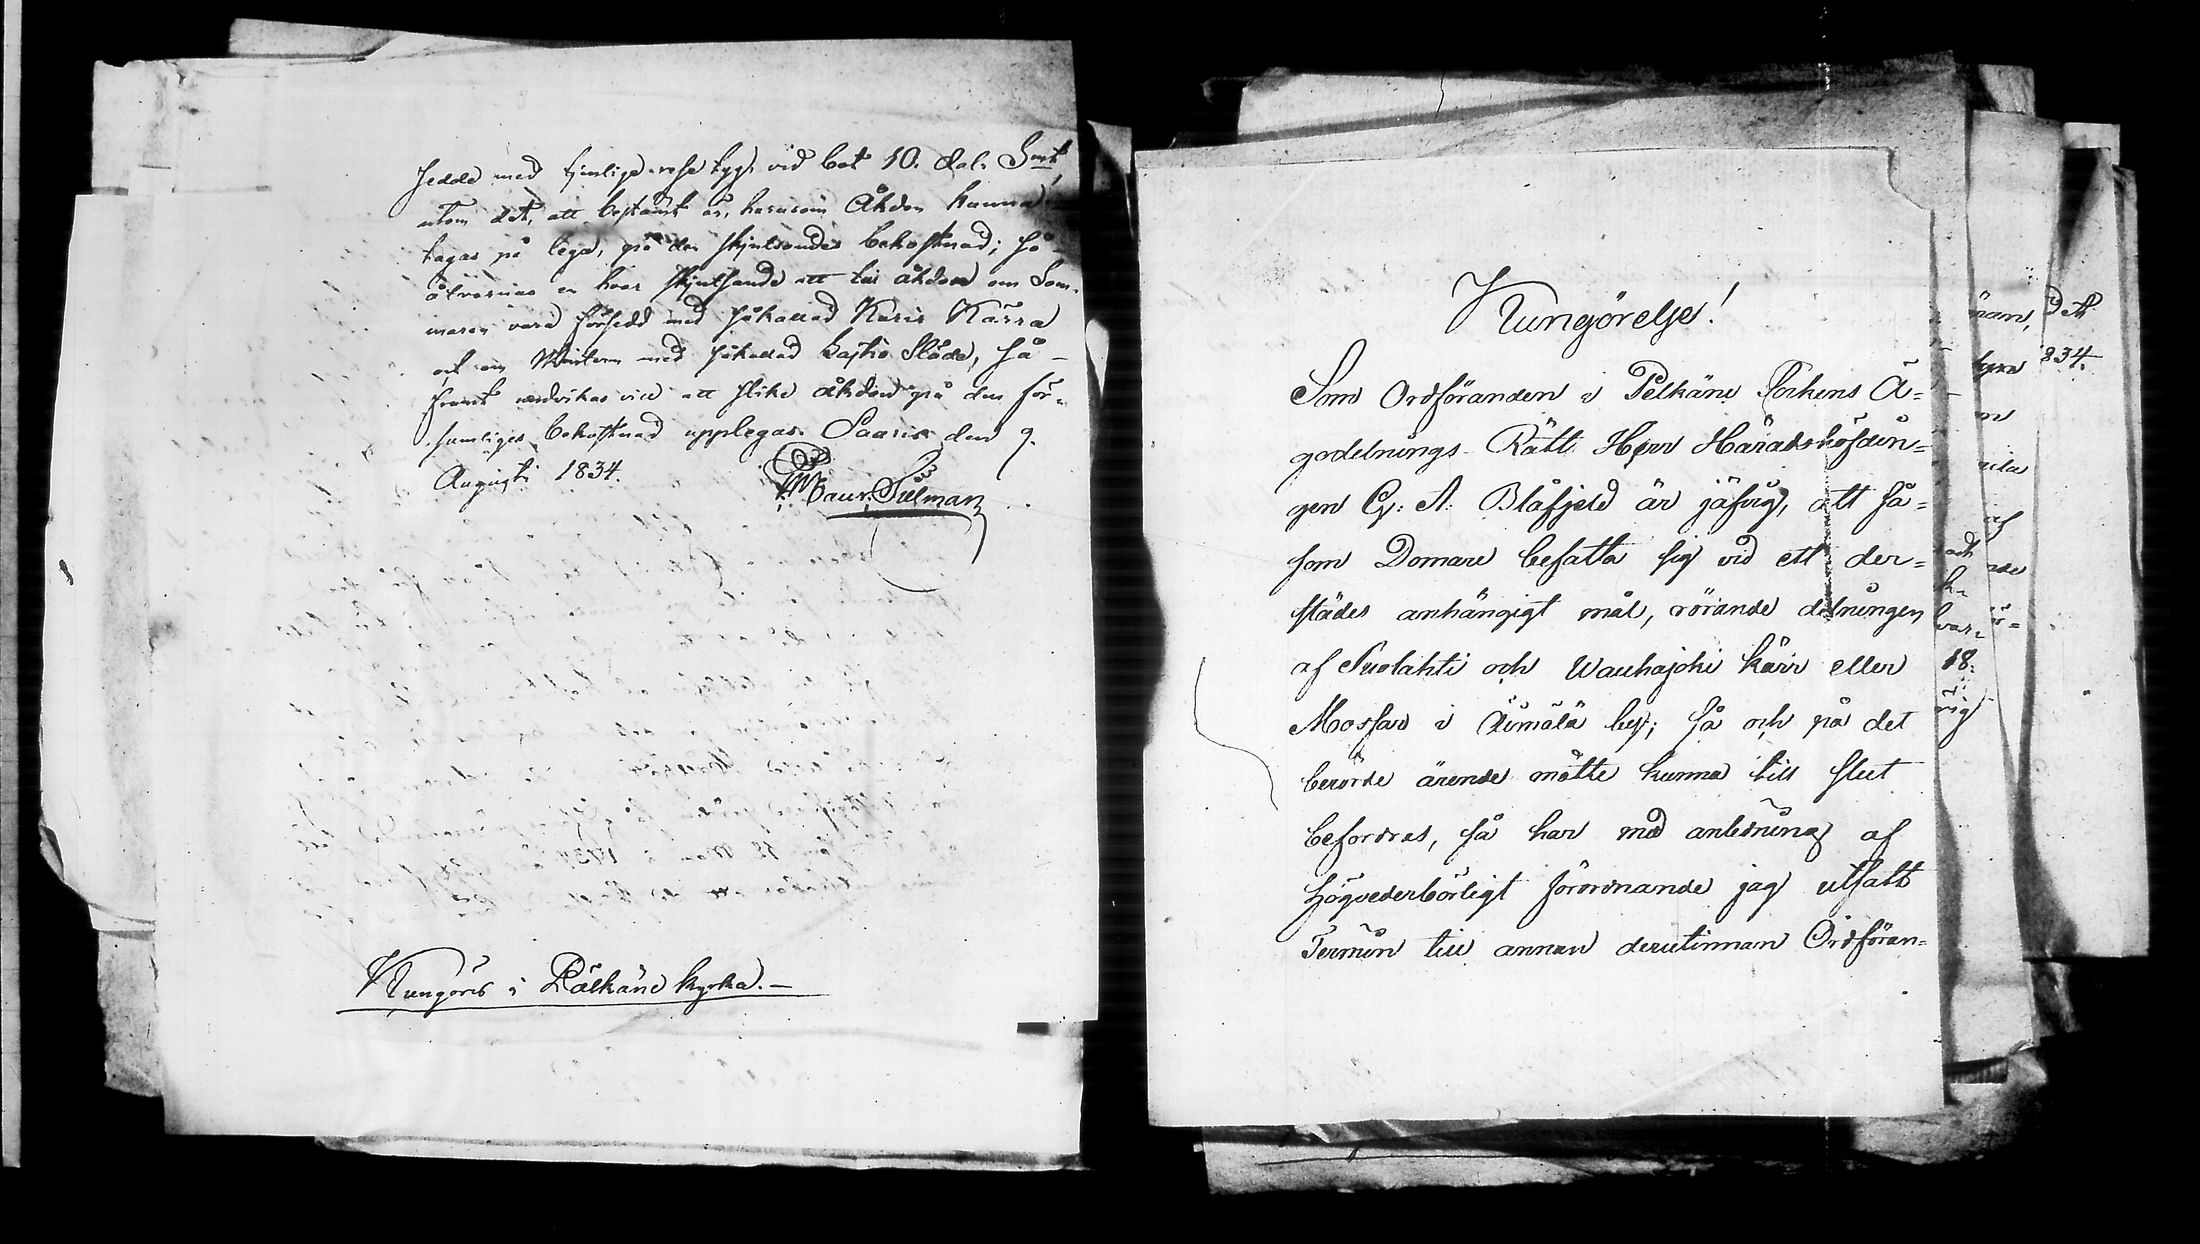 sedde med tjenliga resetyg, vid bot 10. dal. Smt,
utom det, att bestämt är, huruсom Åkdon kunna
tagas på lega, på den skjutsandes bekostnad; så
åtvarnas en hvar skjutsande att till åkdon om Som-
maren vara försedd med såkallad Kärra
och om Wintern med såkallad Släde, så-
framt undvikas vill att slike åkdon på den för-
sumliges bekostnad upplegas. Saaris den 9.
Augusti 1834.
Maur. Silman
Kungöres i Pälkäne kyrka.-
Kungörelse!
Som Ordföranden i Pelkäne Sockens Ä-
godelnings Rätt Herr Häradshöfdin-
gen G. A. Blåfjeld är jäfvig, att så-
som Domare befatta sig vid ett der-
städes anhängigt mål, rörande delningen
af Suolahti och Wauhajoki kärr eller
Mossar i Äimälä by; så och på det
berörde ärende måtte kunna till slut
befordras, så har med anledning af
högvederbörligt förordnande jag utsatt
Termin till annan derutinnan Ordföran-
det
834.
af
18.